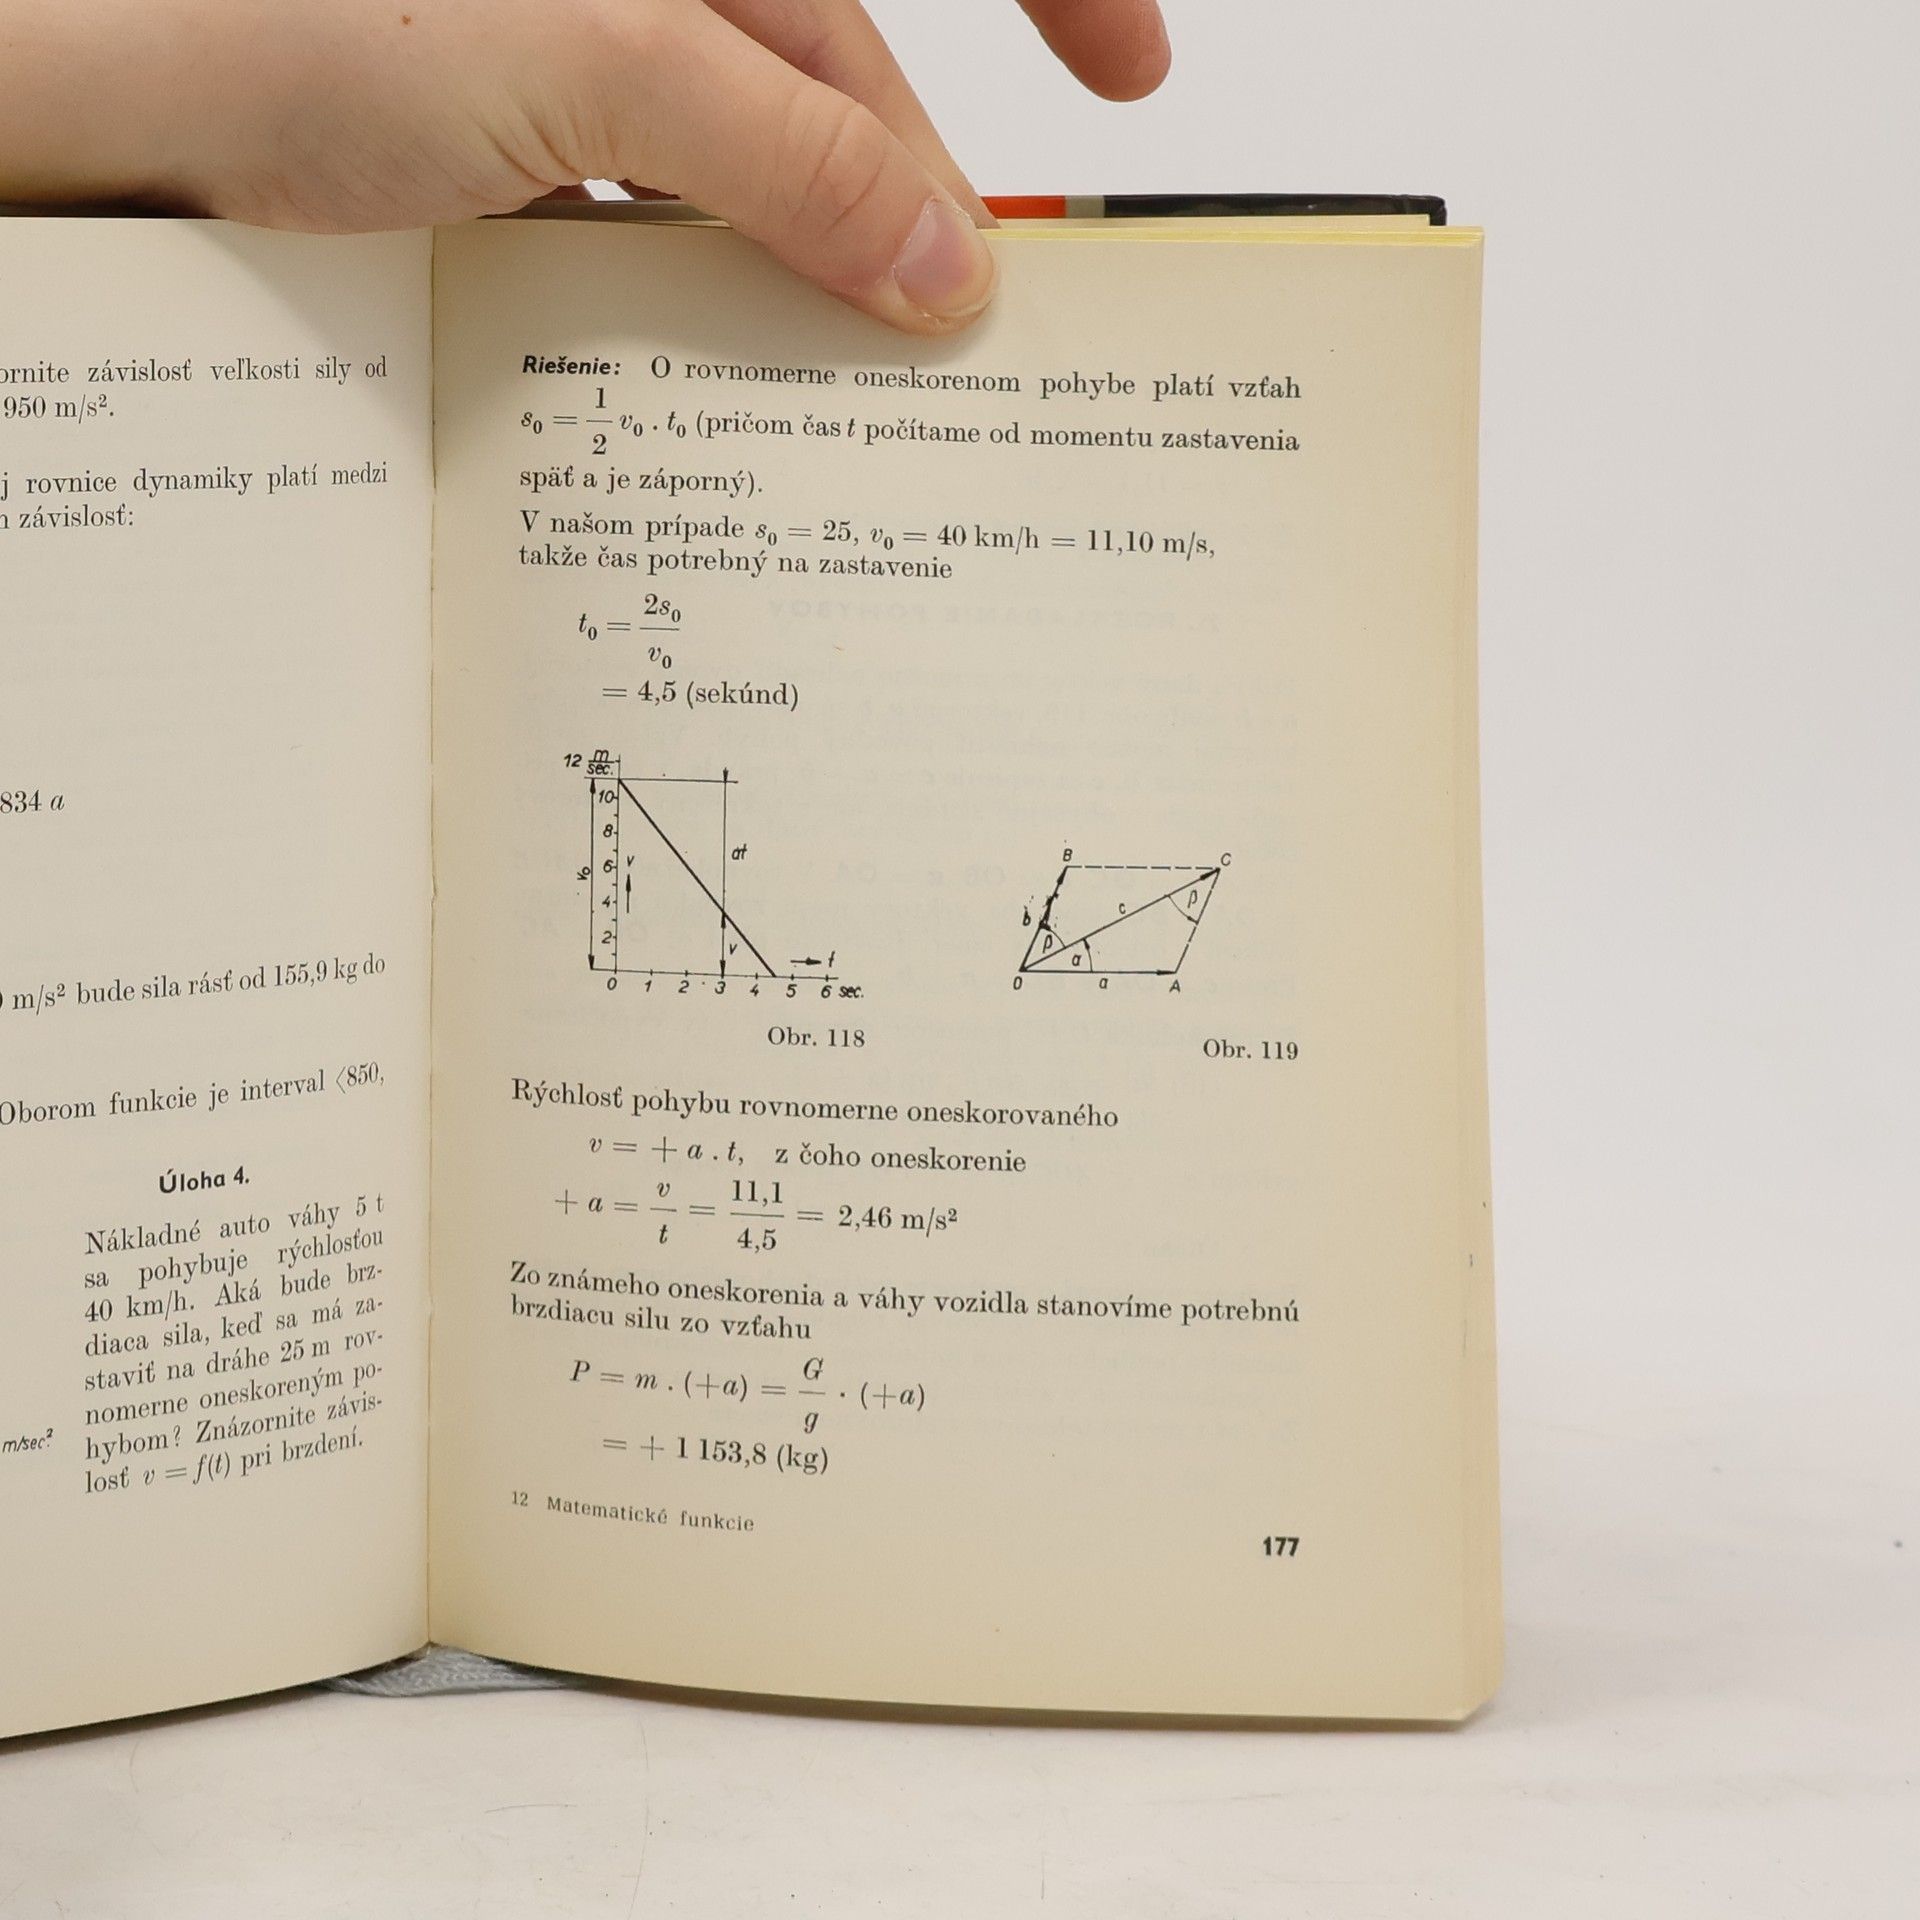 ornite závislosť veľkosti sily od
950 m/s².
j rovnice dynamiky platí medzi
závislosť:
834 a
m/s² bude sila rásť od 155,9 kg do
Oborom funkcie je interval ⟨850,
Úloha 4.
Nákladné auto váhy 5 t
sa pohybuje rýchlosťou
40 km/h. Aká bude brz-
diaca sila, keď sa má za-
staviť na dráhe 25 m rov-
nomerne oneskoreným po-
hybom? Znázornite závis-
losť v = f(t) pri brzdení.
m/sec.²
Riešenie: O rovnomerne oneskorenom pohybe platí vzťah
s₀ = 1/2 v₀ . t₀ (pričom čas t počítame od momentu zastavenia
späť a je záporný).
V našom prípade s₀ = 25, v₀ = 40 km/h = 11,10 m/s,
takže čas potrebný na zastavenie
t₀ = 2s₀/v₀
= 4,5 (sekúnd)
12 m/sec.
10
8
6
4
2
v₀
v
at
v
t
0 1 2 3 4 5 6 sec.
B C
b c β
β α
0 a A
Obr. 118
Obr. 119
Rýchlosť pohybu rovnomerne oneskorovaného
v = + a . t, z čoho oneskorenie
+ a = v/t = 11,1/4,5 = 2,46 m/s²
Zo známeho oneskorenia a váhy vozidla stanovíme potrebnú
brzdiacu silu zo vzťahu
P = m . (+a) = G/g . (+a)
= + 1 153,8 (kg)
12 Matematické funkcie
177